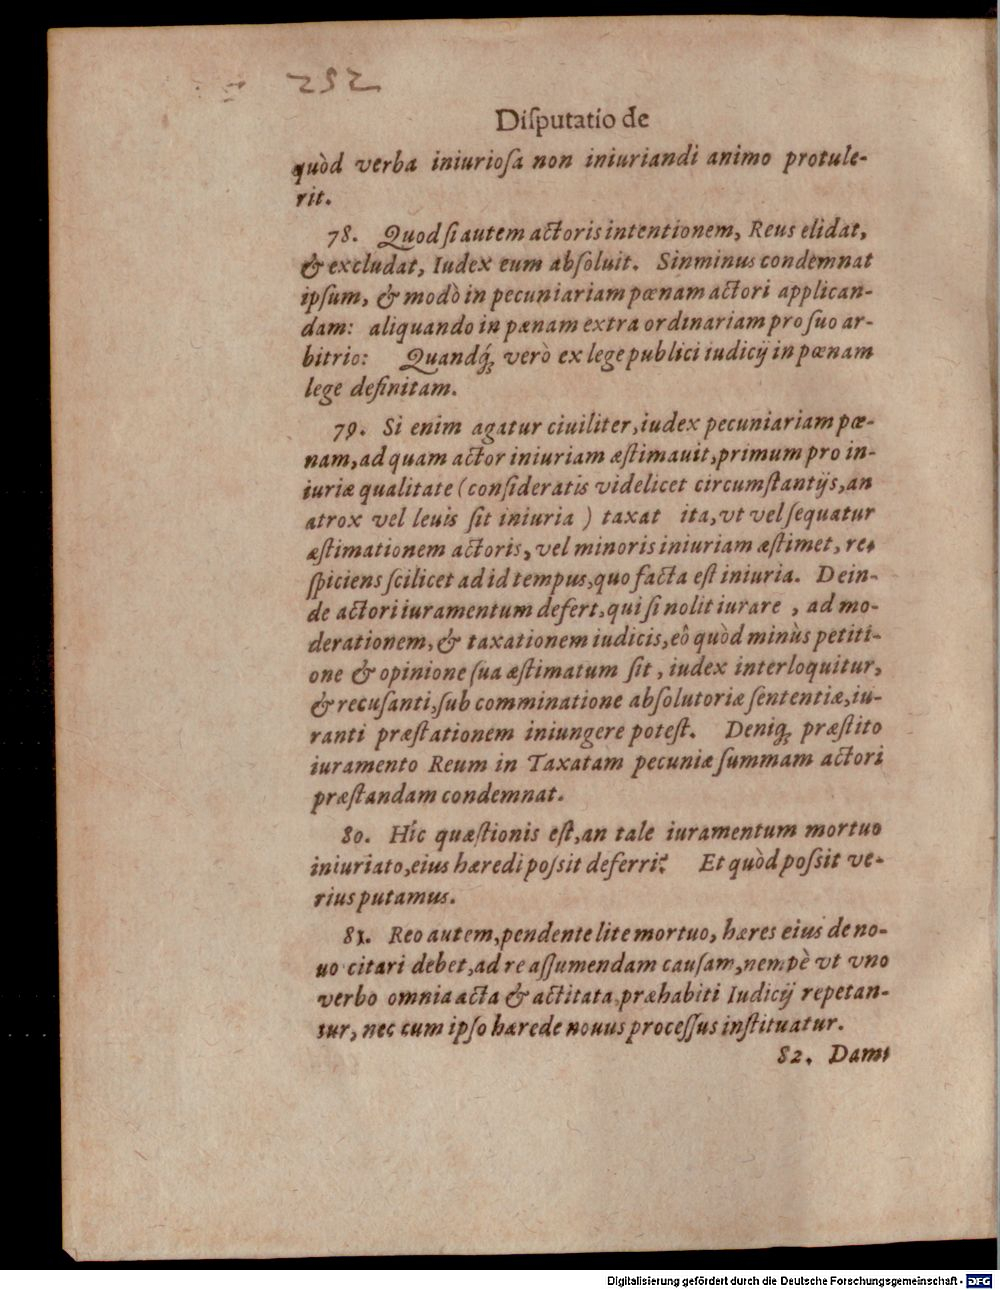 252
Diſputatio de
quòd verba iniurioſa non iniuriandi animo protule-
rit.
78. Quod ſi autem actoris intentionem, Reus elidat,
& excludat, Iudex eum abſoluit. Sinminus condemnat
ipſum, & modò in pecuniariam pœnam actori applican-
dam: aliquando in pænam extra ordinariam pro ſuo ar-
bitrio: Quandq́; verò ex lege publici iudicij in pœnam
lege definitam.
79. Si enim agatur ciuiliter, iudex pecuniariam pœ-
nam, ad quam actor iniuriam æſtimauit, primum pro in-
iuriæ qualitate (conſideratis videlicet circumſtantijs, an
atrox vel leuis ſit iniuria ) taxat ita, vt vel ſequatur
æſtimationem actoris, vel minoris iniuriam æſtimet, re-
ſpiciens ſcilicet ad id tempus, quo facta eſt iniuria. Dein-
de actori iuramentum defert, qui ſi nolit iurare , ad mo-
derationem, & taxationem iudicis, eô quòd minùs petiti-
one & opinione ſua æſtimatum ſit, iudex interloquitur,
& recuſanti, ſub comminatione abſolutoriæ ſententiæ, iu-
ranti præſtationem iniungere poteſt. Deniq; præſtito
iuramento Reum in Taxatam pecuniæ ſummam actori
præſtandam condemnat.
80. Hîc quæſtionis eſt, an tale iuramentum mortuo
iniuriato, eius hæredi poſsit deferri? Et quòd poſsit ve-
rius putamus.
81. Reo autem, pendente lite mortuo, hæres eius de no-
uo citari debet, ad re aſſumendam cauſam, nempè vt vno
verbo omnia acta & actitata, præhabiti Iudicij repetan-
tur, nec cum ipſo hærede nouus proceſſus inſtituatur.
82. Dam:
Digitalisierung gefördert durch die Deutsche Forschungsgemeinschaft - DFG